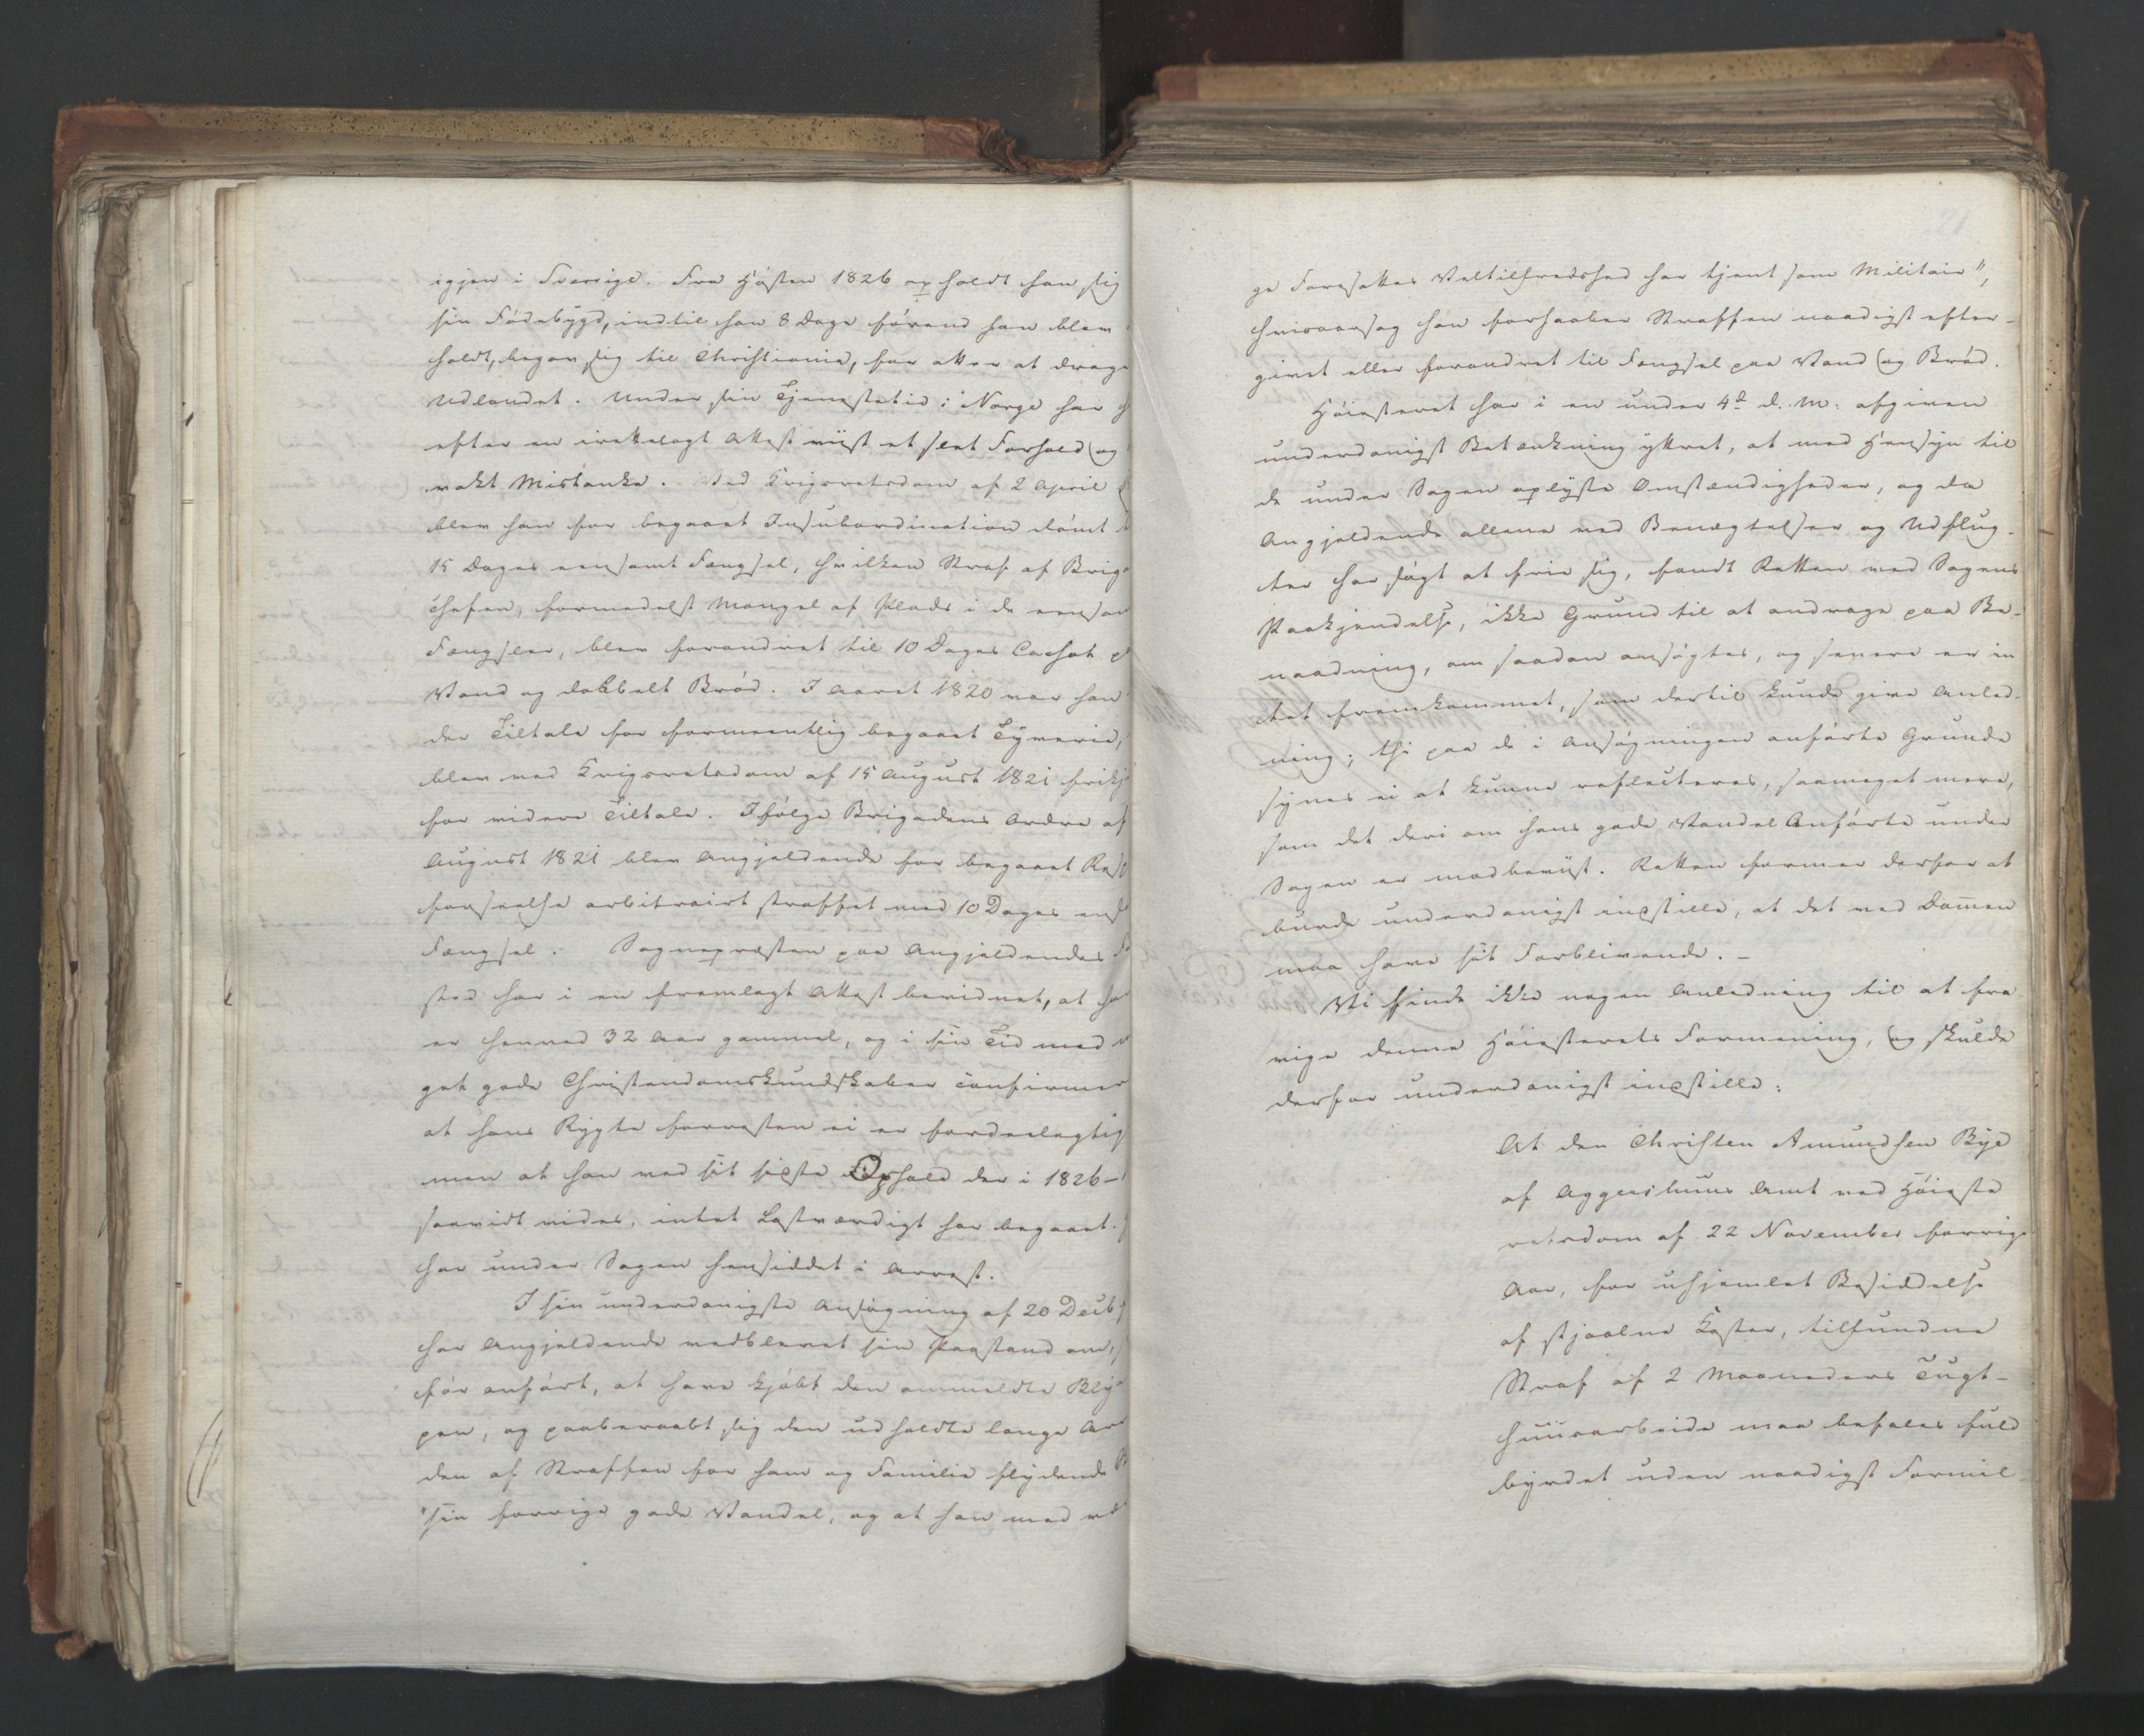 igjen i Sverrige. Fra Høsten 1826 opholdt han sig
sin Fødebygd, indtil han 8 Dage førend han blev
holdt, begav sig til Christiania, for atter at drage
Udlandet. Under sin Tjenestetid i Norge har
efter en irettelagt Attest viist et slet Forhold og
vakt Mistanke. Ved Krigsretsdom af 2 April
blev han for begaaet Insubordination dømt
15 Dages eensomt Fængsel, hvilken Straf af Brig
chefen, formedelst Mangel af Plads i de eenso
Fængsler, blev forandret til 10 Dages Cachot
Vand og dobbelt Brød. I Aaret 1820 var han
der Tiltale for formeentlig begaaet Tyverie,
blev ved Krigsretsdom af 15 August 1821 frikj
for videre Tiltale. Ifølge Brigadens Ordre af
August 1821 blev Angjeldende for begaaet
forseelse arbitrairt straffet med 10 Dages
Fængsel. Sognepræsten paa Angjeldendes
sted har i en fremlagt Attest bevidnet, at ha
er henved 32 Aar gammel, og i sin Tid med
get gode Christendomskundskaber confirme
at hans Rygte forresten ei er fordeelagtig
men at han ved sit sidste Ophold der i 1826 –
saavidt vides, intet Lastværdigt har begaaet.
har under Sagen hensiddet i Arrest.
I sin underdanigste Ansøgning af 20 Decb
har Angjeldende vedblevet sin Paastand om,
før anført, at have kjøbt den ommeldte
pen, og paaberaabt sig den udholdte lange Ar
den af Straffen for ham og Familie flydende
"sin forrige gode Vandel, og at han med
21
ge Foresattes Veltilfredshed har tjent som Militair",
hvisaarsag han forhaaber Straffen naadigst efter-
givet eller forandret til Fængsel paa Vand og Brød.
Høiesteret har i en under 4de d. M. afgiven
underdanigst Betænkning yttret, at med Hensyn til
de under Sagen oplyste Omstændigheder, og da
Angjeldende allene ved Benægtelser og Udflug-
ter har søgt at frie sig, fandt Retten ved Sagens
Paakjendelse, ikke Grund til at andrage paa Be-
naadning, om saadan ansøgtes, og senere er in
tet fremkommet, som dertil kunde give Anled-
ning; thi paa de i Ansøgningen anførte Grunde
synes ei at kunne reflecteres, saameget mere,
som det deri om hans gode Vandel Anførte under
Sagen er modbeviist. Retten formener derfor at
burde underdanigst indstille, at det ved Dommen
maa have sit Forblivende. –
Vi finde ikke nogen Anledning til at fra
vige denne Høiesterets Formening, og skulde
derfor underdanigst indstille:
At den Christen Amundsen Bye
af Aggershuus Amt ved Høieste
retsdom af 22 November forrige
Aar, for uhjemlet Besiddelse
af stjaalne Koster, tilfundne
Straf af 2 Maaneders Tugt-
huusarbeide maa befales fuld
byrdet uden naadigst Formil-